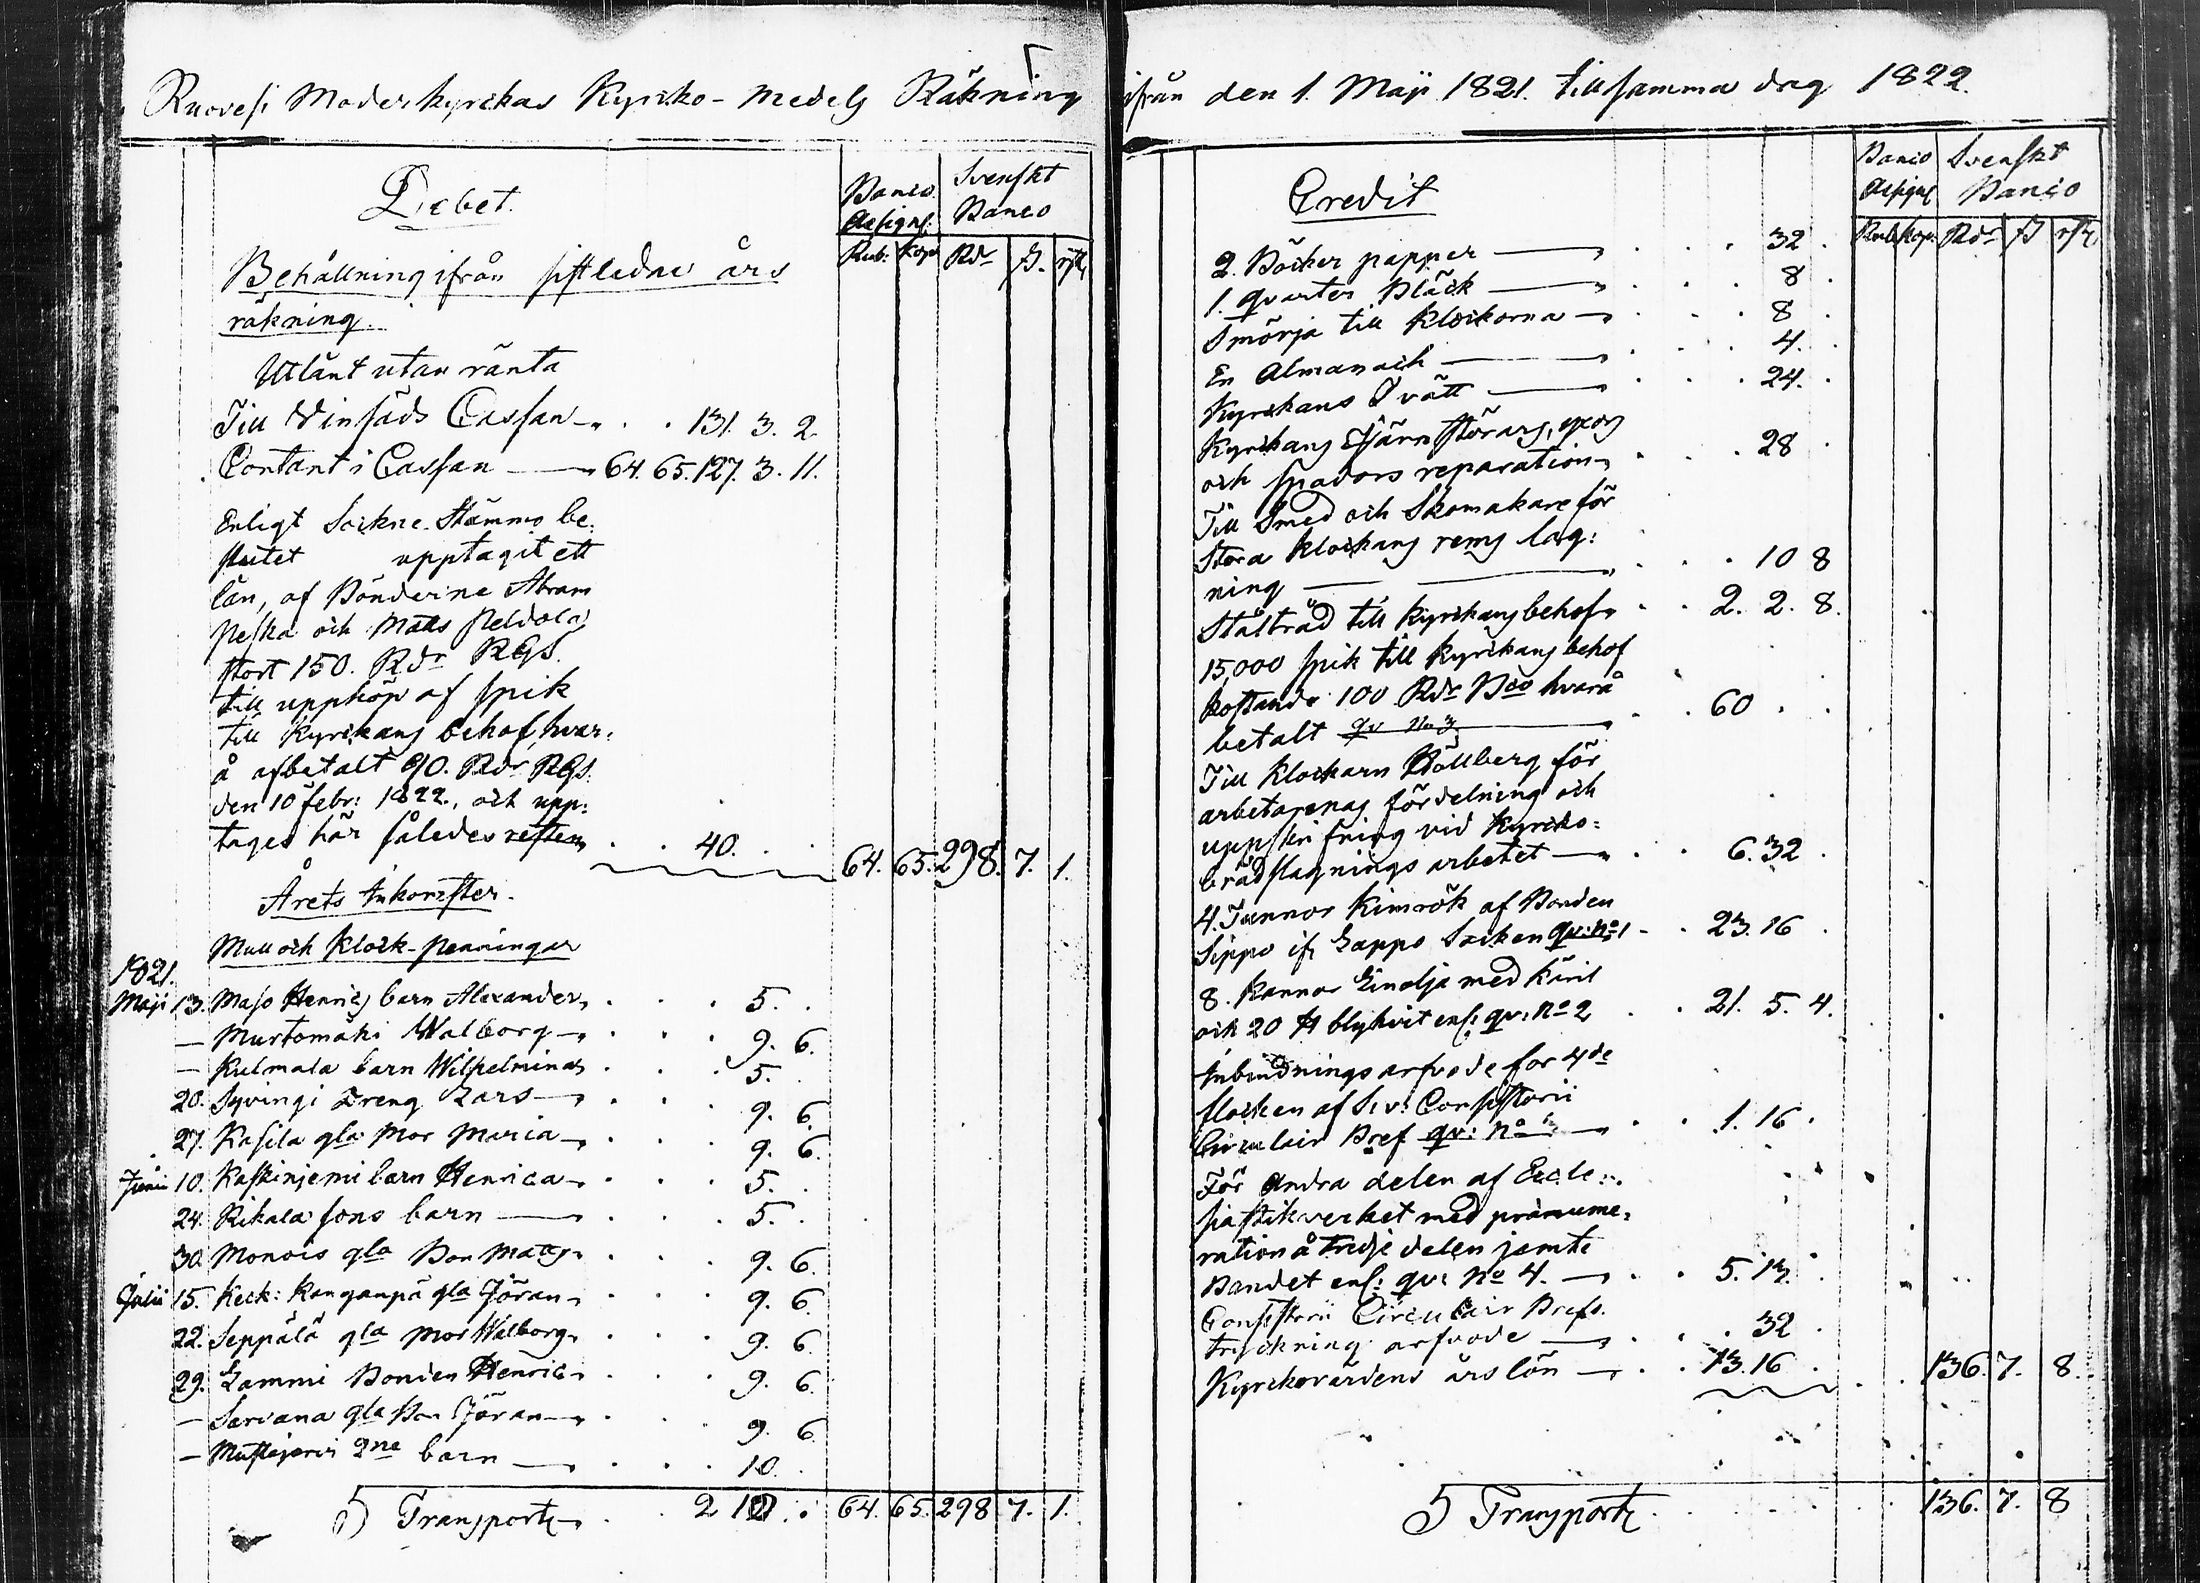 Ruovesi Moderkyrckas Kyrcko-Medels Räkning
Debet.
Banco Assignl:
Svenskt Banco
Rub: Kop: Rdr ß. rst:
Behållning ifrån sistledne års
räkning.
Utlånt utan ränta
Till Vinsäds Cassan . . 131. 3. 2.
Contant i Cassan 64. 65. 127. 3. 11.
Enligt Sockne Stämmo be:
slutet upptagit ett
lån, af Bönderne Abram
Peska och Matts
stort 150. Rdr RGS.
till uppköp af spik
till Kyrckans behof, hvar:
å afbetalt 90. Rdr RGS.
den 10 febr: 1822., och upp:
tages här således resten . . 40. . . 64. 65. 298. 7. 1.
Årets Inkomster.
Mull och Klock-penningar
1821.
Maji 13. Maso Henrics barn Alexander . . . 5. .
— Murtomäki Walborg . . . 9. 6.
— Kulmala barn Wilhelmina . . . 5. .
20. Syvingi Dreng Lars . . . 9. 6.
27. Kasila gla Mor Maria . . . 9. 6.
Junii 10. Kaskinjemi barn Henrica . . . 5. .
24. Rikala sons barn . . . 5. .
30. Monois gla Bon Matts . . . 9. 6.
Julii 15. Keck: Kanganpä gla Jöran . . . 9. 6.
22. Seppälä gla mor Walborg . . . 9. 6.
29. Lammi Bonden Henric . . . 9. 6.
— Sarvana gla Bon Jöran . . . 9. 6.
— Mustajervi 2ne barn . . . 10. .
Transport . . 2 10 . 64. 65. 298 7. 1.
ifrån den 1. Maji 1821. till samma dag 1822.
Credit
Banco Assignl
Svenskt Banco
Rub: Kop: Rdr ß rst:
2. Böcker papper . . . 32 .
1. Qvarter Bläck . . . 8 .
Smörja till Klockorna . . . 8 .
En Almanach . . . 4. .
Kyrckans Tvätt . . . 24. .
Kyrckans Järn störars, yxors
och spadors reparation . . . 28 .
Till Smed och Skomakare för
Stora Klockans rems lag:
ning . . . 10 8
Ståltråd till Kyrckans behof . . 2. 2. 8.
15,000 spik till Kyrckans behof
kostande 100 Rdr Bco hvarå
betalt qv No 3 . . 60 . .
Till Klockarn Böllberg för
arbetarenas fördelning och
uppskrifning vid Kyrcko:
brädslagnings arbetet . . 6. 32 .
4. Tunnor Kimrök af Bonden
Sippo ifr Lappo Socken qv: No 1 . . 23. 16 .
8. Kannor Linolja med Käril
och 20 ℔ blyhvit enl: qv: No 2 . . 21. 5. 4.
Inbindnings arfvode for 4de
flocken af Ven: Consistorii
Circulair Bref qv: No . . 1. 16 .
För Andra delen af Eccle:
siastikverket med prænume:
ration å tredje delen jemte
Bandet enl: qv: No 4. . . 5. 13. .
Consistorii Circulair Brefs
tryckning arfvode . . . 32 .
Kyrckovärdens års lön . . 13. 16 . . . 136. 7. 8.
Transport . . . 136. 7. 8